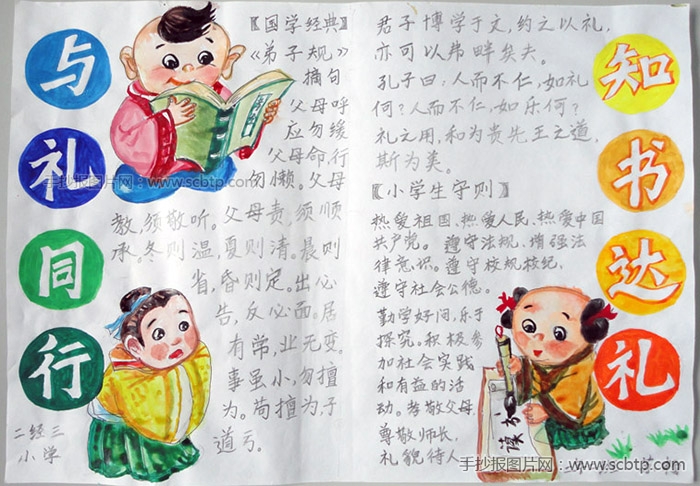 与
礼
同
行
【国学经典】
《弟子规》
摘句
父母呼
应勿缓
父母命,行
勿懒。父母
教,须敬听。父母责,须顺
承。冬则温,夏则凊。晨则
省,昏则定。出必
告,反必面。居
有常,业无变。
事虽小,勿擅
为。苟擅为,子
道亏。
二经三
小学
君子博学于文,约之以礼,
亦可以弗畔矣夫。
孔子曰:人而不仁,如礼
何?人而不仁,如乐何?
礼之用,和为贵先王之道,
斯为美。
【小学生守则】
热爱祖国、热爱人民、热爱中国
共产党。遵守法规、增强法
律意识。遵守校规校纪,
遵守社会公德。
勤学好问,乐于
探究。积极参
加社会实践
和有益的活
动。孝敬父母,
尊敬师长,
礼貌待人
读书
知
书
达
礼
手抄报图片网:www.scbtp.com
手抄报图片网:www.scbtp.com